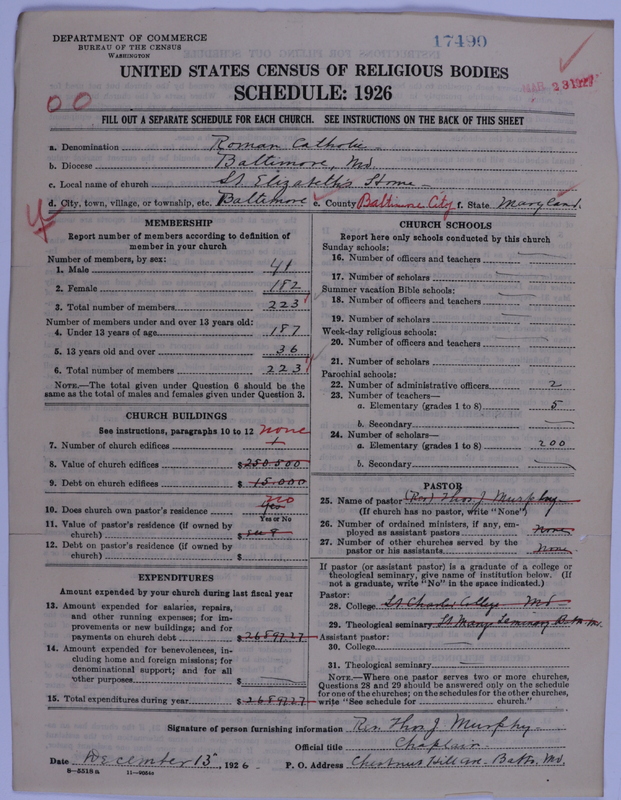 DEPARTMENT OF COMMERCE
BUREAU OF THE CENSUS
WASHINGTON
17490
MAR 23 1927
UNITED STATES CENSUS OF RELIGIOUS BODIES
SCHEDULE: 1926
FILL OUT A SEPARATE SCHEDULE FOR EACH CHURCH. SEE INSTRUCTIONS ON THE BACK OF THIS SHEET
a. Denomination Roman Catholic
b. Diocese Baltimore, Md.
c. Local name of church St. Elizabeth's Home
d. City, town, village, or township, etc. Baltimore e. County Baltimore City f. State Maryland.
MEMBERSHIP
Report number of members according to definition of member in your church
Number of members, by sex:
1. Male 41
2. Female 182
3. Total number of members 223
Number of members under and over 13 years old:
4. Under 13 years of age 187
5. 13 years old and over 36
6. Total number of members 223
NOTE.—The total given under Question 6 should be the
same as the total of males and females given under Question 3.
CHURCH BUILDINGS
See instructions, paragraphs 10 to 12 none
7. Number of church edifices 1
8. Value of church edifices $ 250 500
9. Debt on church edifices $ 15.000
no
10. Does church own pastor's residence yes
Yes or No
11. Value of pastor's residence (if owned by
church) $
12. Debt on pastor's residence (if owned by
church) $
EXPENDITURES
Amount expended by your church during last fiscal year
13. Amount expended for salaries, repairs,
and other running expenses; for im-
provements or new buildings; and for
payments on church debt $ 26897.27
14. Amount expended for benevolences, in-
cluding home and foreign missions; for
denominational support; and for all
other purposes $
15. Total expenditures during year $ 26897.27
CHURCH SCHOOLS
Report here only schools conducted by this church
Sunday schools:
16. Number of officers and teachers
17. Number of scholars
Summer vacation Bible schools:
18. Number of officers and teachers
19. Number of scholars
Week-day religious schools:
20. Number of officers and teachers
21. Number of scholars
Parochial schools:
22. Number of administrative officers 2
23. Number of teachers—
a. Elementary (grades 1 to 8) 5
b. Secondary
24. Number of scholars—
a. Elementary (grades 1 to 8) 200
b. Secondary
PASTOR
25. Name of pastor (Rev) Thos J Murphy
(If church has no pastor, write "None")
26. Number of ordained ministers, if any, em-
ployed as assistant pastors none
27. Number of other churches served by the
pastor or his assistants none
If pastor (or assistant pastor) is a graduate of a college or
theological seminary, give name of institution below. (If
not a graduate, write "No" in the space indicated.)
Pastor:
28. College St Charles College Md
29. Theological seminary St Mary Seminary Balto Md.
Assistant pastor:
30. College
31. Theological seminary
NOTE.—Where one pastor serves two or more churches,
Questions 28 and 29 should be answered only on the schedule
for one of the churches; on the schedules for the other churches,
write "See schedule for church."
Signature of person furnishing information Rev. Thos J Murphy
Official title Chaplain
Date December 15, 1926
P. O. Address Chestnut Hill Ave. Balto, Md.
8—5518 a 11—9054